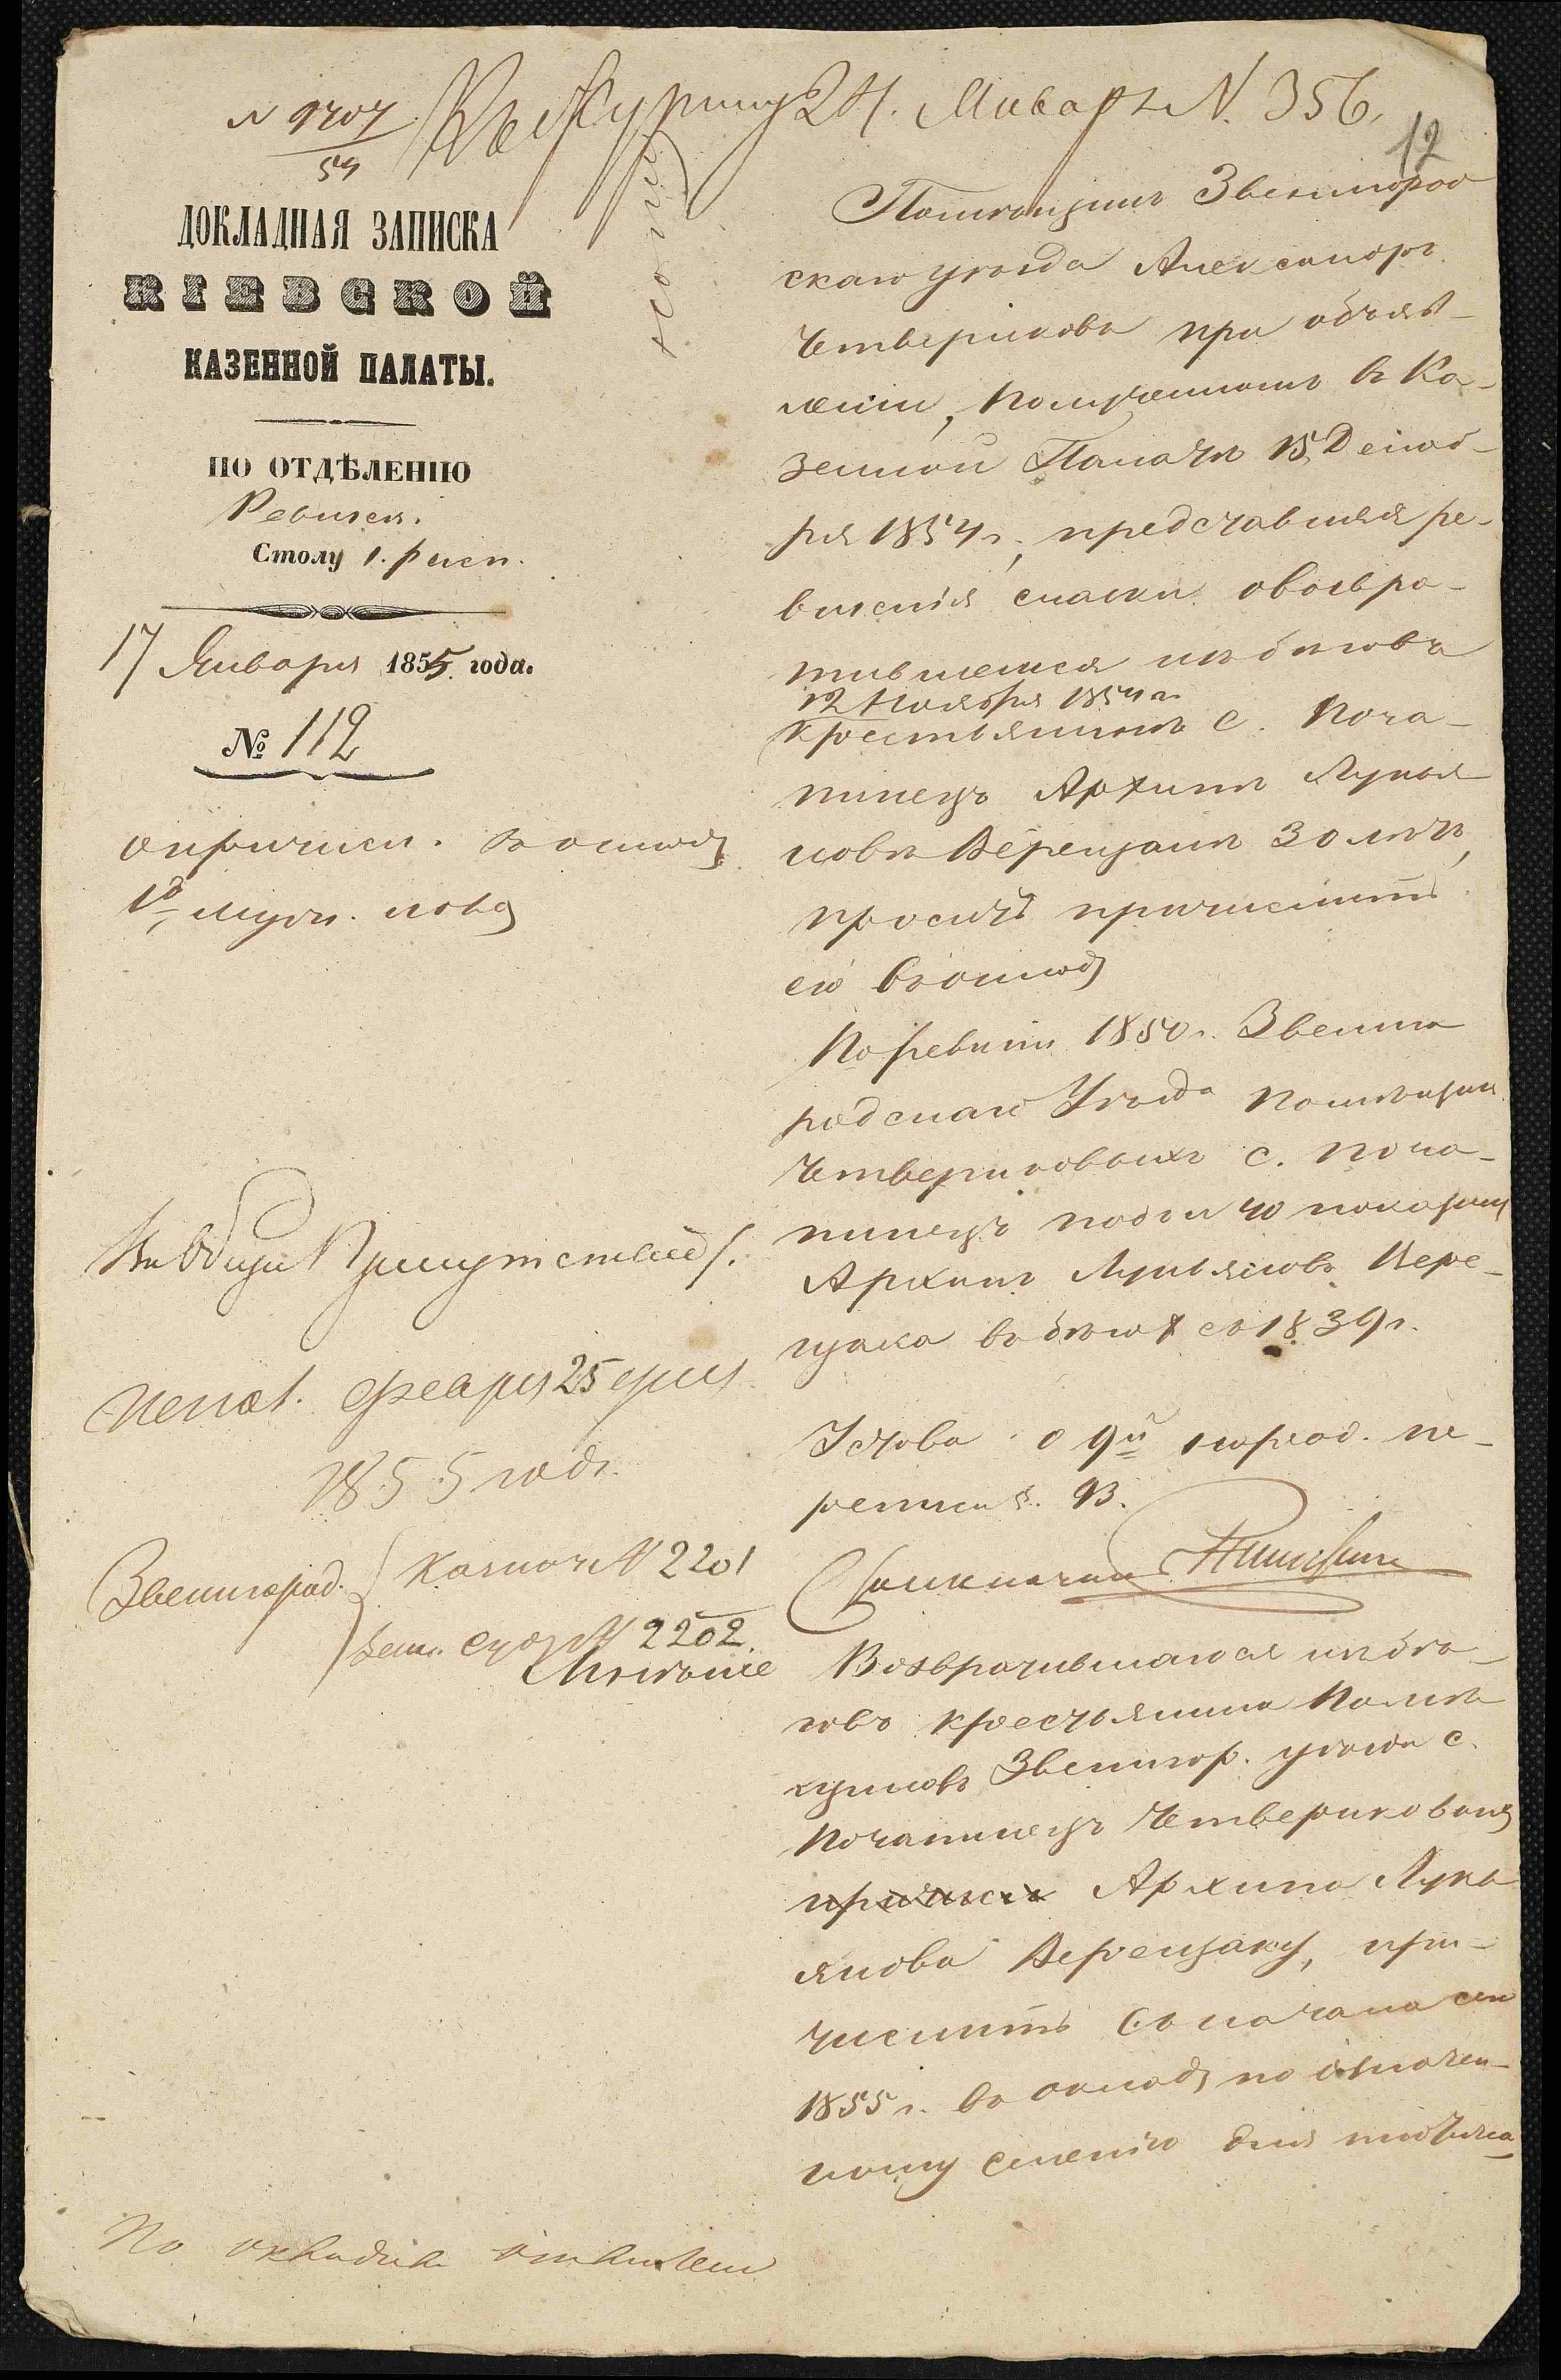 N 9707
54
Къ Журналу 24. Января N. 356.
12
ДОКЛАДНАЯ ЗАПИСКА
КІЕВСКОЙ
КАЗЕННОЙ ПАЛАТЫ.
ПО ОТДѢЛЕНІЮ
Ревизск.
Столу 1. рыси.
17 Января 1855 года.
№ 112
о причисл. въ окладъ
1й муж. пола
Въ Общее Присутствіе.
Исполн. февраля 25 дня
1855 года.
Звенигород. Казнач. N 2201
Зем. суду N 2202.
По окладн. отмѣчен
Помѣщикъ Звенигород
скаго уѣзда Александръ
Четвериковъ при объяв-
леніи, полученномъ въ Ка-
зенной Палатѣ 15 Декаб-
ря 1854 г., представляя ре-
визскія сказки о возвра-
тившемся изъ бѣговъ
12 Ноября 1854 г.
крестьянинѣ с. Поча-
пинецъ Архипѣ Лукья
новѣ Верещакѣ 30 лѣтъ,
проситъ причислить
его въ окладъ
По ревизіи 1850 г. Звениго
родскаго Уѣзда помѣщик.
Четвериковыхъ с. Поча-
пинецъ подъ № 40 показанъ
Архипъ Лукьяновъ Вере-
щака въ бѣгахъ съ 1839 г.
Устава о 9й народ. пе-
реписи §. 93.
Возвратившагося изъ бѣ-
говъ крестьянина помѣ
щиковъ Звенигор. уѣзда с.
Почапинецъ Четвериковыхъ
причисл Архипа Лукь
янова Верещаку, при-
числить съ начала сего
1855 г. въ окладъ по означен-
ному селенію для платежа